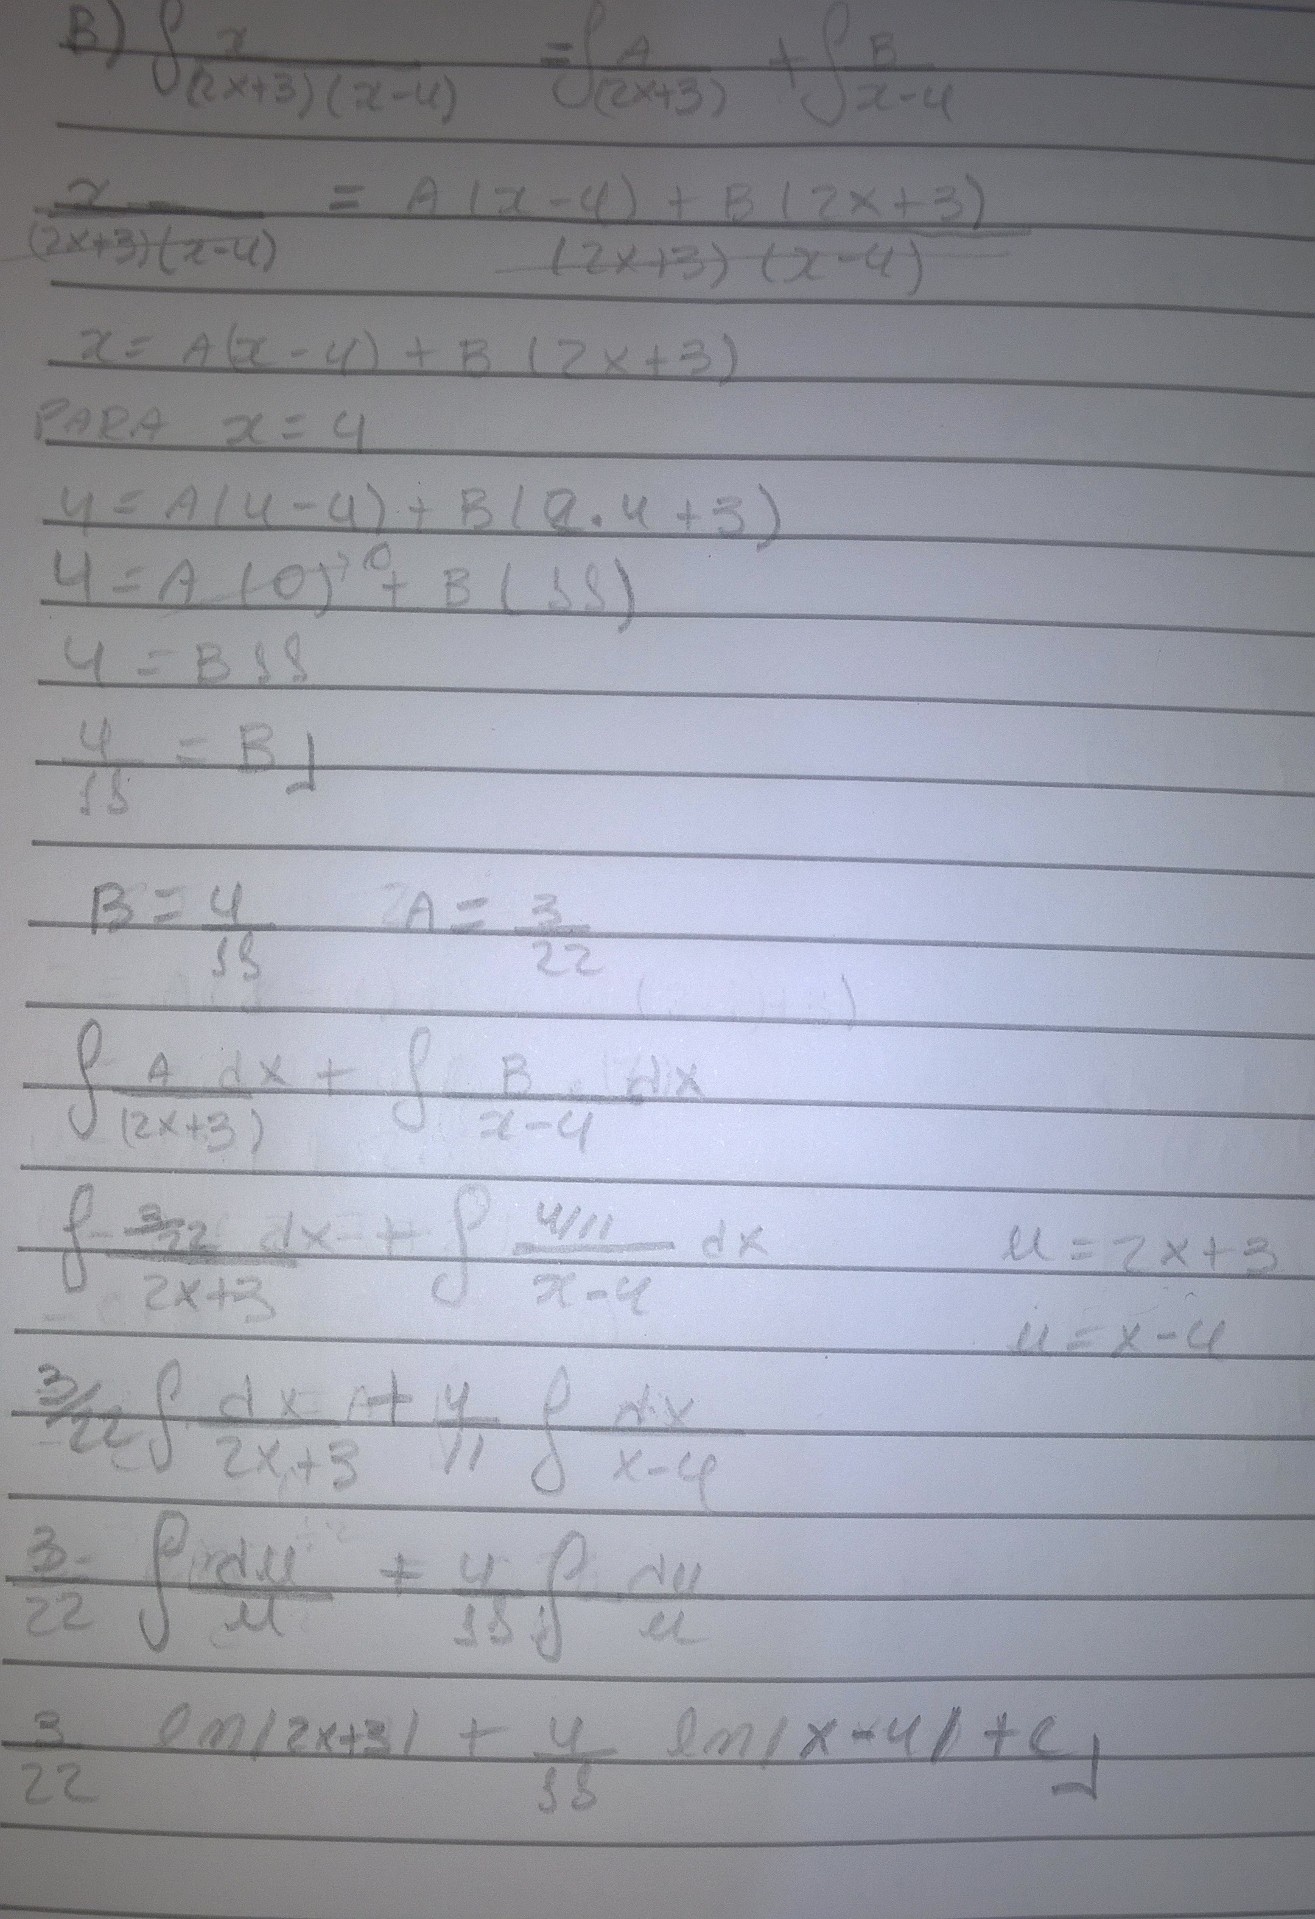 B) ∫ x/((2x+3)(x-4)) = ∫ A/(2x+3) + ∫ B/(x-4)
x/((2x+3)(x-4)) = (A(x-4) + B(2x+3))/((2x+3)(x-4))
x = A(x-4) + B(2x+3)
PARA x = 4
4 = A(4-4) + B(2.4+3)
4 = A(0)→0 + B(11)
4 = B11
4/11 = B
B = 4/11 A = 3/22
∫ A/(2x+3) dx + ∫ B/(x-4) dx
∫ (3/22)/(2x+3) dx + ∫ (4/11)/(x-4) dx u = 2x+3
u = x-4
3/22 ∫ dx/(2x+3) + 4/11 ∫ dx/(x-4)
3/22 ∫ du/u + 4/11 ∫ du/u
3/22 ln|2x+3| + 4/11 ln|x-4| + C